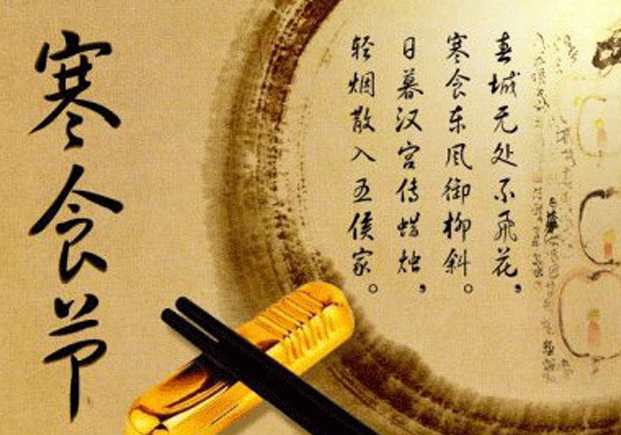 寒食节
春城无处不飛花，
寒食东风御柳斜。
日暮汉宫传蜡烛，
轻烟散入五侯家。